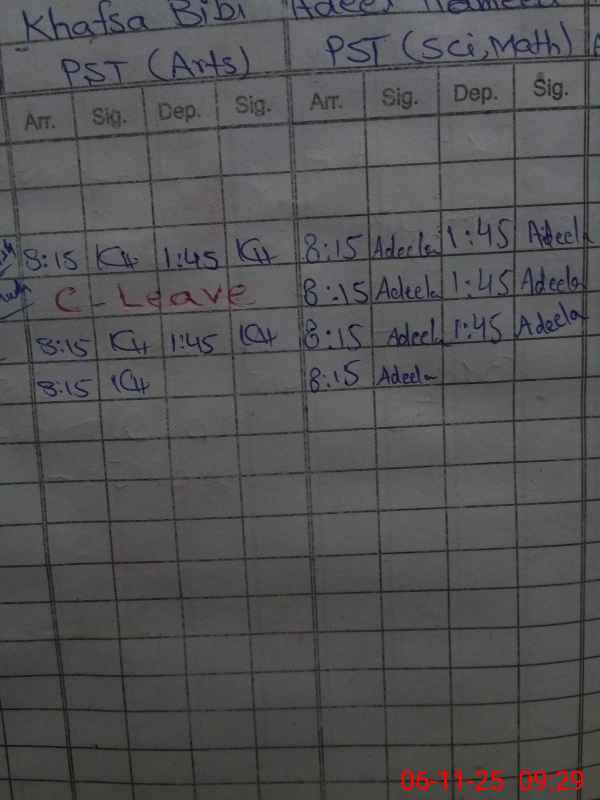 Khafsa Bibi
PST (Arts) PST (Sci, Math)
Arr. Sig. Dep. Sig. Arr. Sig. Dep. Sig.
8:15 KH 1:45 KH 8:15 Adeela 1:45 Adeela
C-Leave 8:15 Adeela 1:45 Adeela
8:15 KH 1:45 KH 8:15 Adeela 1:45 Adeela
8:15 KH 8:15 Adeela
06-11-25 09:29